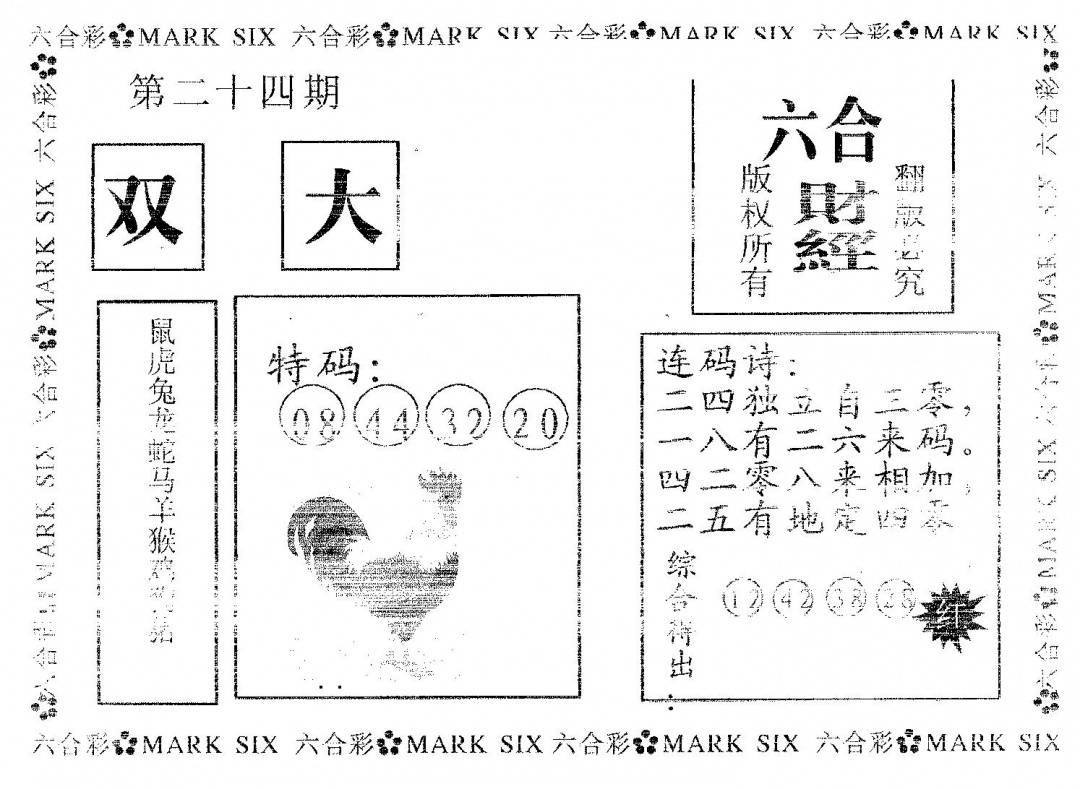 六合彩 MARK SIX 六合彩 MARK SIX 六合彩 MARK SIX 六合彩 MARK SIX
六合彩 MARK SIX 六合彩 MARK SIX 六合彩
第二十四期
双
大
六合
財經
版权所有
翻版必究
鼠虎兔龙蛇马羊猴鸡狗猪
特码：
08 44 32 20
连码诗：
二四独立自三零，
一八有二六来码。
四二零八来相加，
二五有地定四零
综合得出：
12 42 38 28
红
六合彩 MARK SIX 六合彩 MARK SIX 六合彩
六合彩 MARK SIX 六合彩 MARK SIX 六合彩 MARK SIX 六合彩 MARK SIX